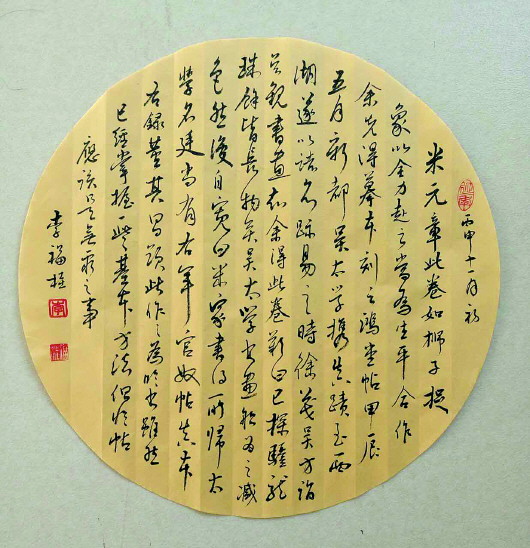 丙申十一月初
米元章此卷如獅子捉
象以全力赴之當為生平合作
余先得摹本刻之鴻堂帖甲辰
五月新都吳太學携真蹟至西
湖遂以諸名跡易之時徐茂吳方詣
吳觀書畫知余得此卷歎曰已探驪龍
珠餘皆長物矣吳太學書畫船為之減
色然後自寬曰米家書得所歸太
學名廷尚有右軍官奴帖真本
右録董其昌跋此作之為臨書雖然
已經掌握一些基本方法但臨帖
應該是無窮之事
李福